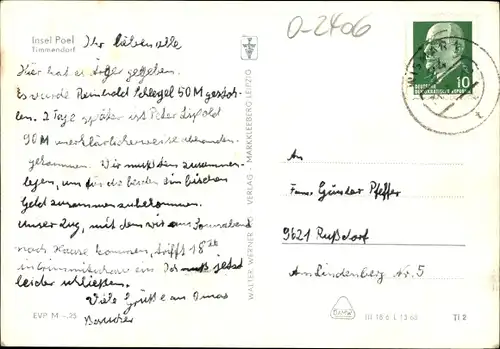 Insel Poel
Timmendorf
O-2406
Ihr Lieben alle
Hier hat es Ärger gegeben.
Es wurde Reinhold Schlegel 50 M gestoh-
len. 2 Tage später ist Peter Lipold
90 M unerklärlicherweise abhanden
gekommen. Wir mußten zusammen-
legen, um für die beiden ein bischen
Geld zusammenzubekommen.
Unser Zug, mit dem wir am Sonnabend
nach Hause kommen, trifft 18
in Crimmitschau ein. Ich muß jetzt
leider schließen.
Viele Grüße an Omas
VERLAG WALTER WERNER KG · MARKKLEEBERG LEIPZIG
DEUTSCHE
DEMOKRATISCHE REPUBLIK
10
An
Fam. Günter Pfeffer
9621 Rußdorf
Am Lindenberg Nr. 5
EVP M -.25
III 18 6 L 13 65
TI 2